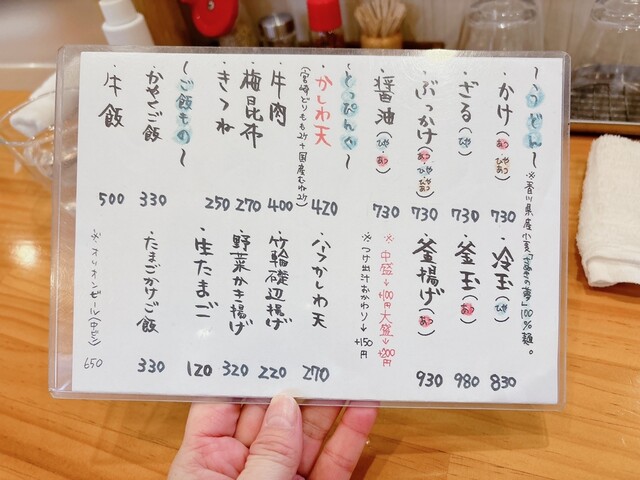 〜うどん〜
※香川県産小麦「さぬきの夢」100%麺。
かけ(あつ・ひや・ひやあつ) 730
ざる(ひや) 730
ぶっかけ(あつ・ひや・ひやあつ) 730
醤油(ひや・あつ) 730
冷玉(ひや) 830
釜玉(あつ) 980
釜揚げ(あつ) 930
※中盛→+100円 大盛→+200円
※つけ出汁おかわり→+150円
〜とっぴんぐ〜
かしわ天 420
(宮崎どりもも2ケ+国産むね2ケ)
牛肉 400
梅昆布 270
きつね 250
ハーフかしわ天 270
竹輪磯辺揚げ 220
野菜かき揚げ 320
生たまご 120
〜ご飯もの〜
かやくご飯 330
牛飯 500
たまごかけご飯 330
※キリンビール(中ビン) 650